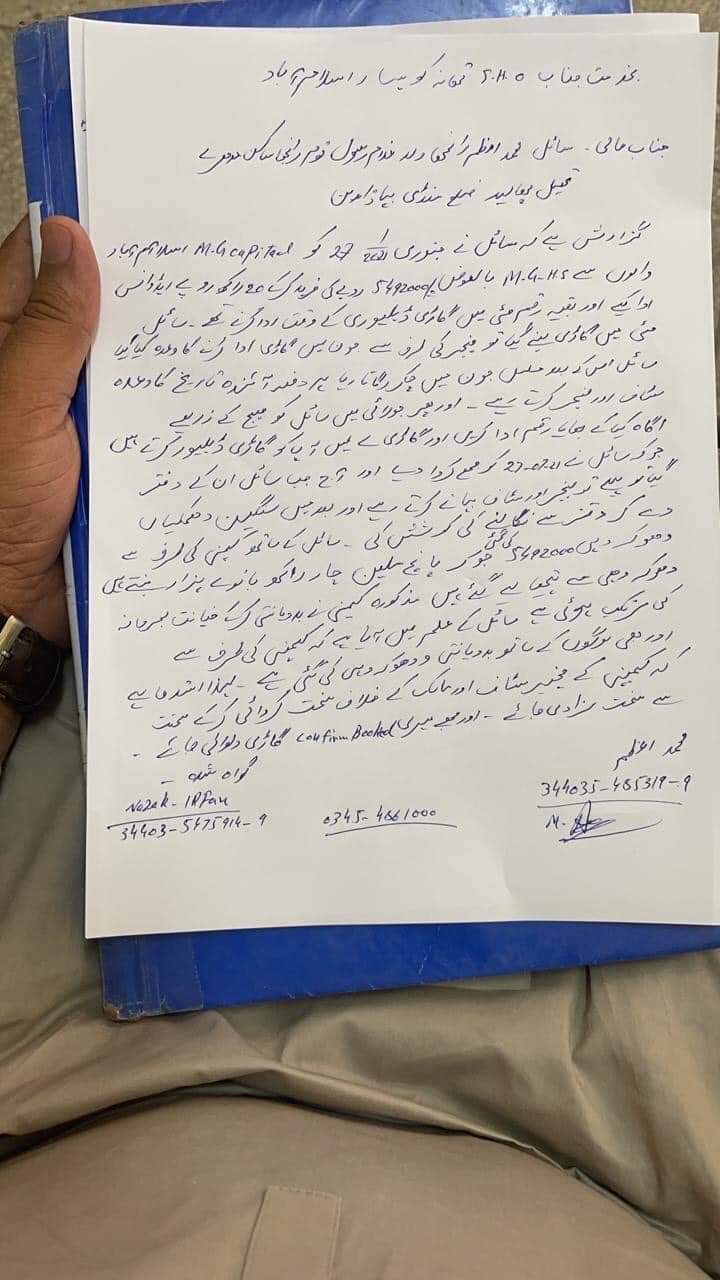 بخدمت جناب S.H.O تھانہ کوہسار اسلام آباد
جناب عالی۔ سائل محمد اعظم رانجھا ولد غلام رسول قوم رانجھا ساکن
تحصیل پھالیہ ضلع منڈی بہاؤالدین
گزارش ہے کہ سائل نے جنوری 27/1/2021 کو M.G capital اسلام آباد
والوں سے M.G-HS بالعوض 5492000/ روپے کی خرید کرکے 20 لاکھ روپے ایڈوانس
ادا کیے اور بقیہ رقم مئی میں گاڑی ڈیلیوری کے وقت ادا کرنے تھے۔ سائل
مئی میں گاڑی لینے گیا تو منیجر کی طرف سے جون میں گاڑی ادا کرنے کا وعدہ کیا گیا
سائل اس کے بعد مسلسل جون میں چکر لگاتا رہا ہر دفعہ آئندہ تاریخ کا وعدہ
سٹاف اور منیجر کرتے رہے۔ اور پھر جولائی میں سائل کو میسج کے ذریعے
آگاہ کیا کے بقایا رقم ادا کریں اور گاڑی لے لیں آپ کو گاڑی ڈیلیور کرتے ہیں
جو کہ سائل نے 27-07-21 کو جمع کروا دیے اور آج جب سائل ان کے دفتر
گیا تو پہلے تو منیجر اور سٹاف بہانے کرتے رہے اور بعد میں سنگین دھمکیاں
دے کر دفتر سے نکالنے کی کوشش کی۔ سائل کے ساتھ کمپنی کی طرف سے
دھوکہ دہی کی گئی 5492000 جو کہ پانچ ملین چار لاکھ بانوے ہزار بنتے ہیں
دھوکہ دہی سے ہتھیا لیے گئے ہیں مذکورہ کمپنی نے بددیانتی کرکے خیانت مجرمانہ
کی مرتکب ہوئی ہے سائل کے علم میں آیا ہے کہ کمپنی کی طرف سے
اور بھی لوگوں کے ساتھ بددیانتی و دھوکہ دہی کی گئی ہے۔ لہذا استدعا ہے
کہ کمپنی کے منیجر سٹاف اور مالک کے خلاف سخت کاروائی کرکے سخت
سے سخت سزا دی جائے۔ اور مجھے میری Confirm Booked گاڑی دلوائی جائے۔
محمد اعظم
344035-485319-9
M.
0345-4661000
گواہ شدہ۔
Nazak-IRFan
34403-5475914-9